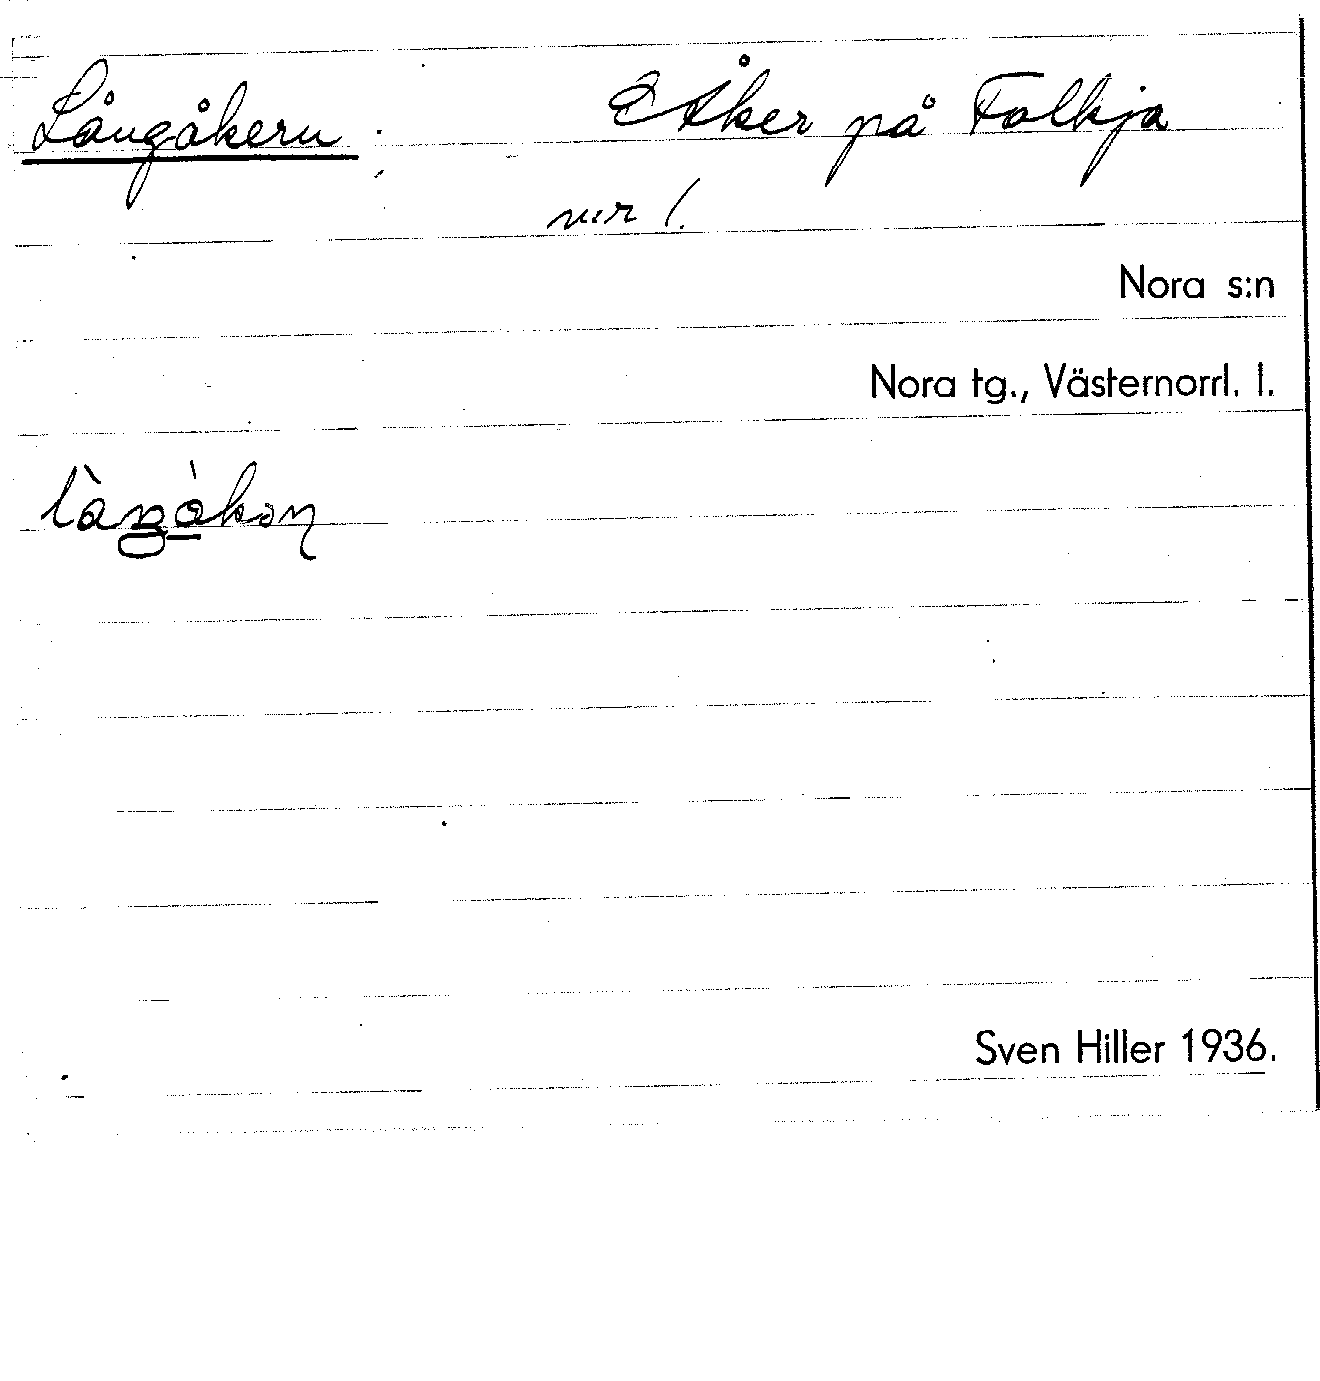 Långåkern. Åker på Folkja
nr 1.
Nora s:n
Nora tg., Västernorrl. l.
Sven Hiller 1936.